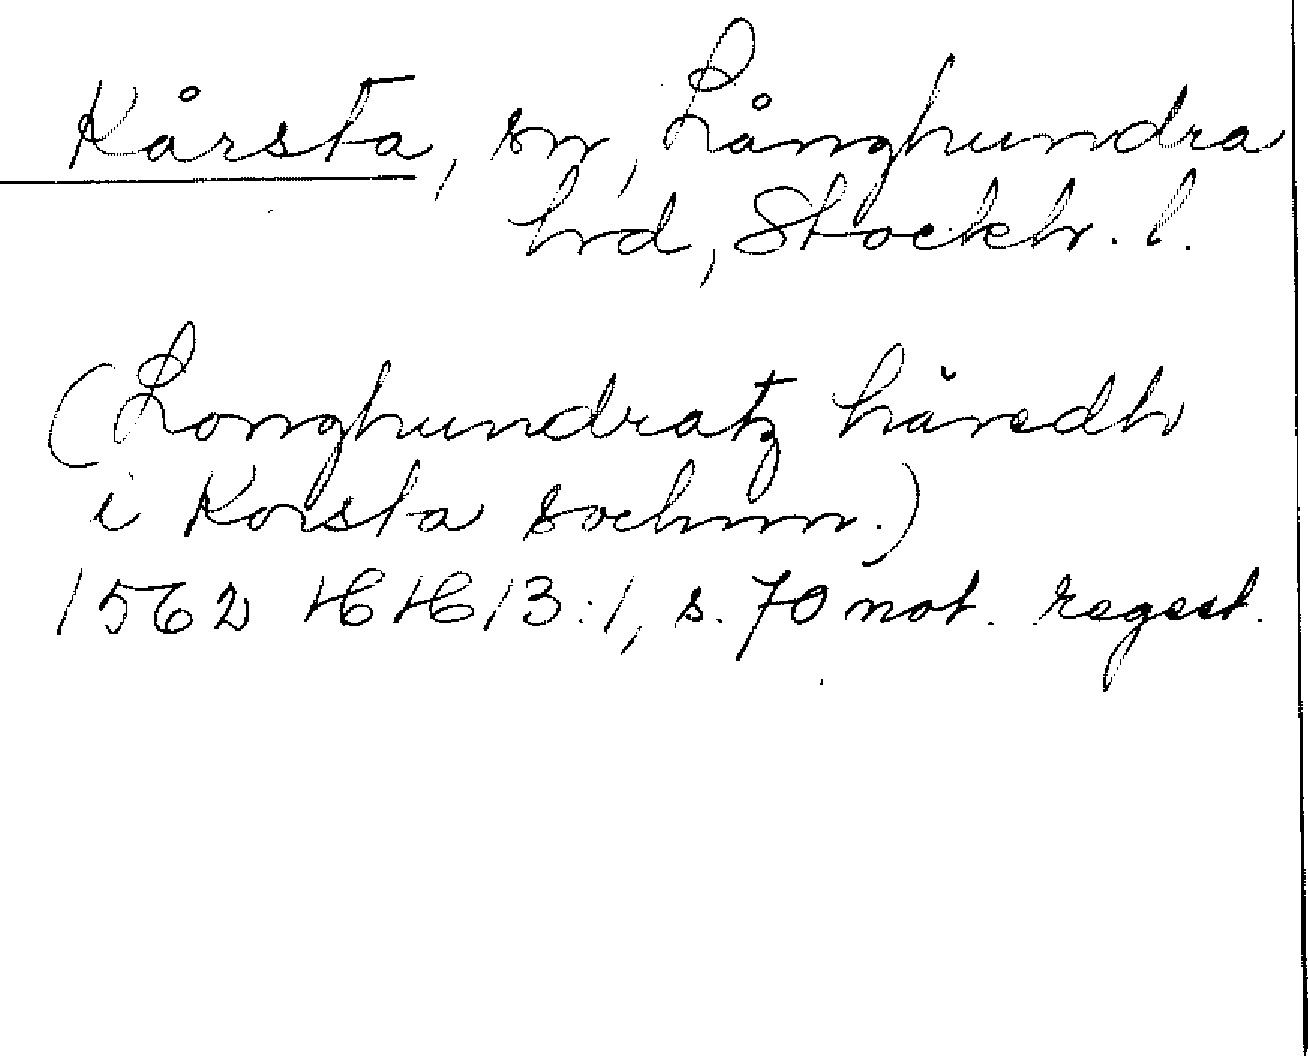 Kårsta, sn, Långhundra
hrd, Stockh. l.
(Longhundratz häredh
i Korsta sochnn.)
1562 HH 13:1, s. 70 not. regest.